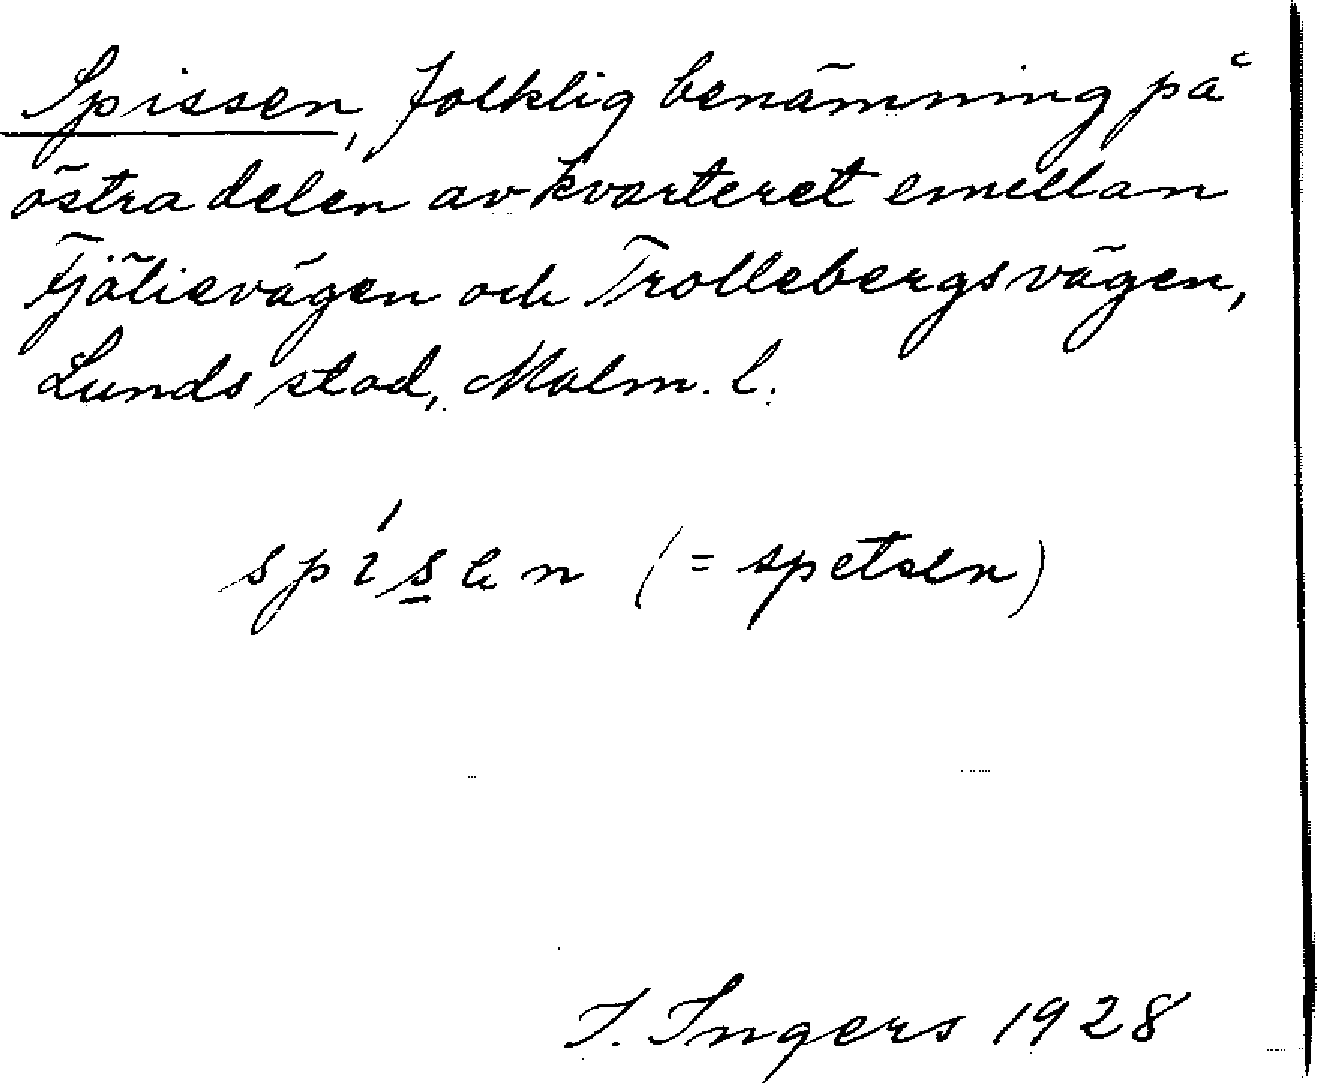 Spissen, folklig benämning på
östra delen av kvarteret emellan
Fjälievägen och Trollebergsvägen,
Lunds stad, Malm. l.
spísen (= spetsen)
I. Ingers 1928